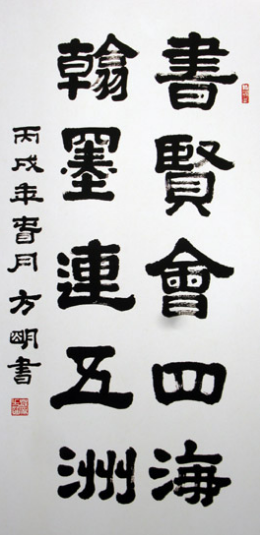 書賢會四海
翰墨連五洲
丙戌年春月方明書